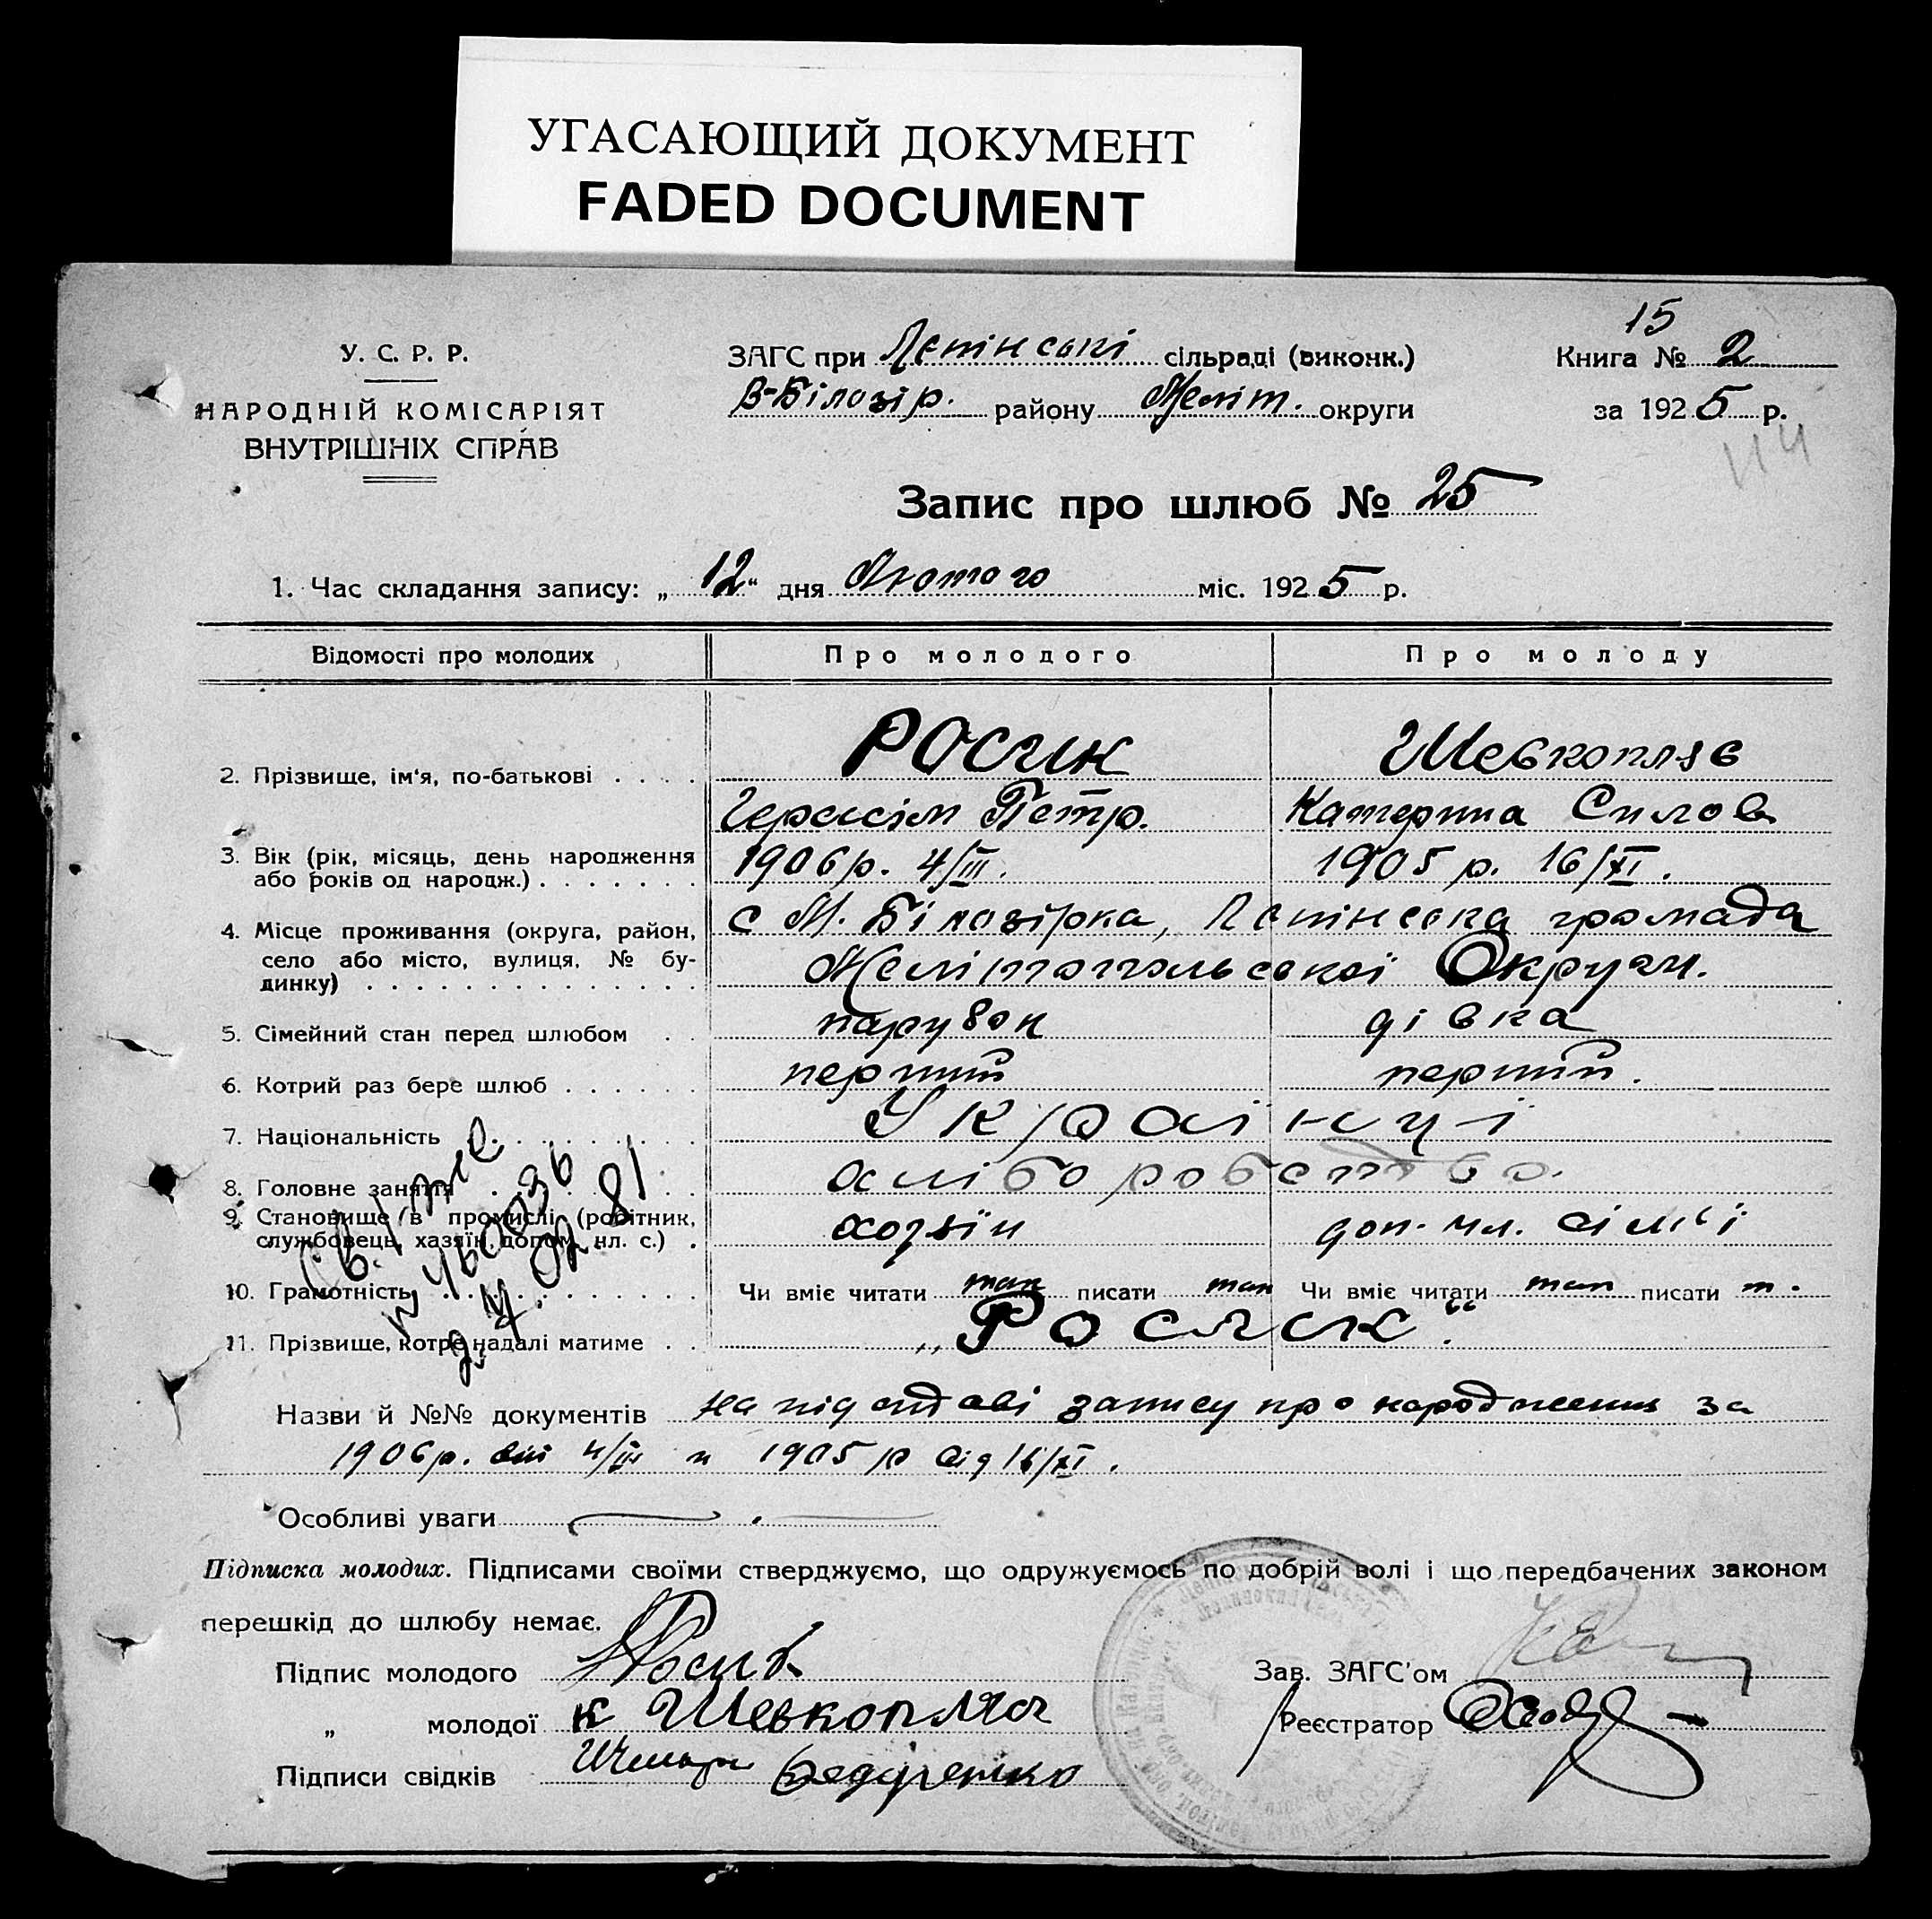 УГАСАЮЩИЙ ДОКУМЕНТ
FADED DOCUMENT
15
У. С. Р. Р.
НАРОДНІЙ КОМІСАРІЯТ
ВНУТРІШНІХ СПРАВ
ЗАГС при Ленінські сільраді (виконк.)
В-Білозір. району Меліт. округи
Книга № 2
за 1925 р.
Запис про шлюб № 25
1. Час складання запису: „12" дня Лютого міс. 1925 р.
Відомості про молодих Про молодого Про молоду
2. Прізвище, ім'я, по-батькові . . . . Росик Шевкопляс
Герасім Петр. Катерина Силов
3. Вік (рік, місяць, день народження або років од народж.) . . . . . . . 1906 р. 4/III. 1905 р. 16/XI.
4. Місце проживання (округа, район, село або місто, вулиця, № будинку) . . . . . . . . . . . . . с М. Білозірка, Ленінська громада
Мелітопольської Округи.
5. Сімейний стан перед шлюбом . . парубок дівка
6. Котрий раз бере шлюб . . . . . . перший перший.
7. Національність . . . . . . . . . Українці
8. Головне заняття . . . . . . . . хліборобство.
9. Становище в промислі (робітник, службовець, хазяїн, допом. чл. с.) . хозяїн доп. чл. сім'ї
10. Грамотність . . . . . . . . . . . Чи вміє читати так писати так Чи вміє читати так писати т.
11. Прізвище, котре надалі матиме . . „Росик".
№ 460036
02.81
Назви й №№ документів на підставі запису про народження за
1906 р. від 4/III и 1905 р від 16/XI.
Особливі уваги
Підписка молодих. Підписами своїми стверджуємо, що одружуємось по добрій волі і що передбачених законом
перешкід до шлюбу немає.
Підпис молодого Росик Зав. ЗАГС'ом
„ молодої К Шевкопляс Реєстратор
Підписи свідків